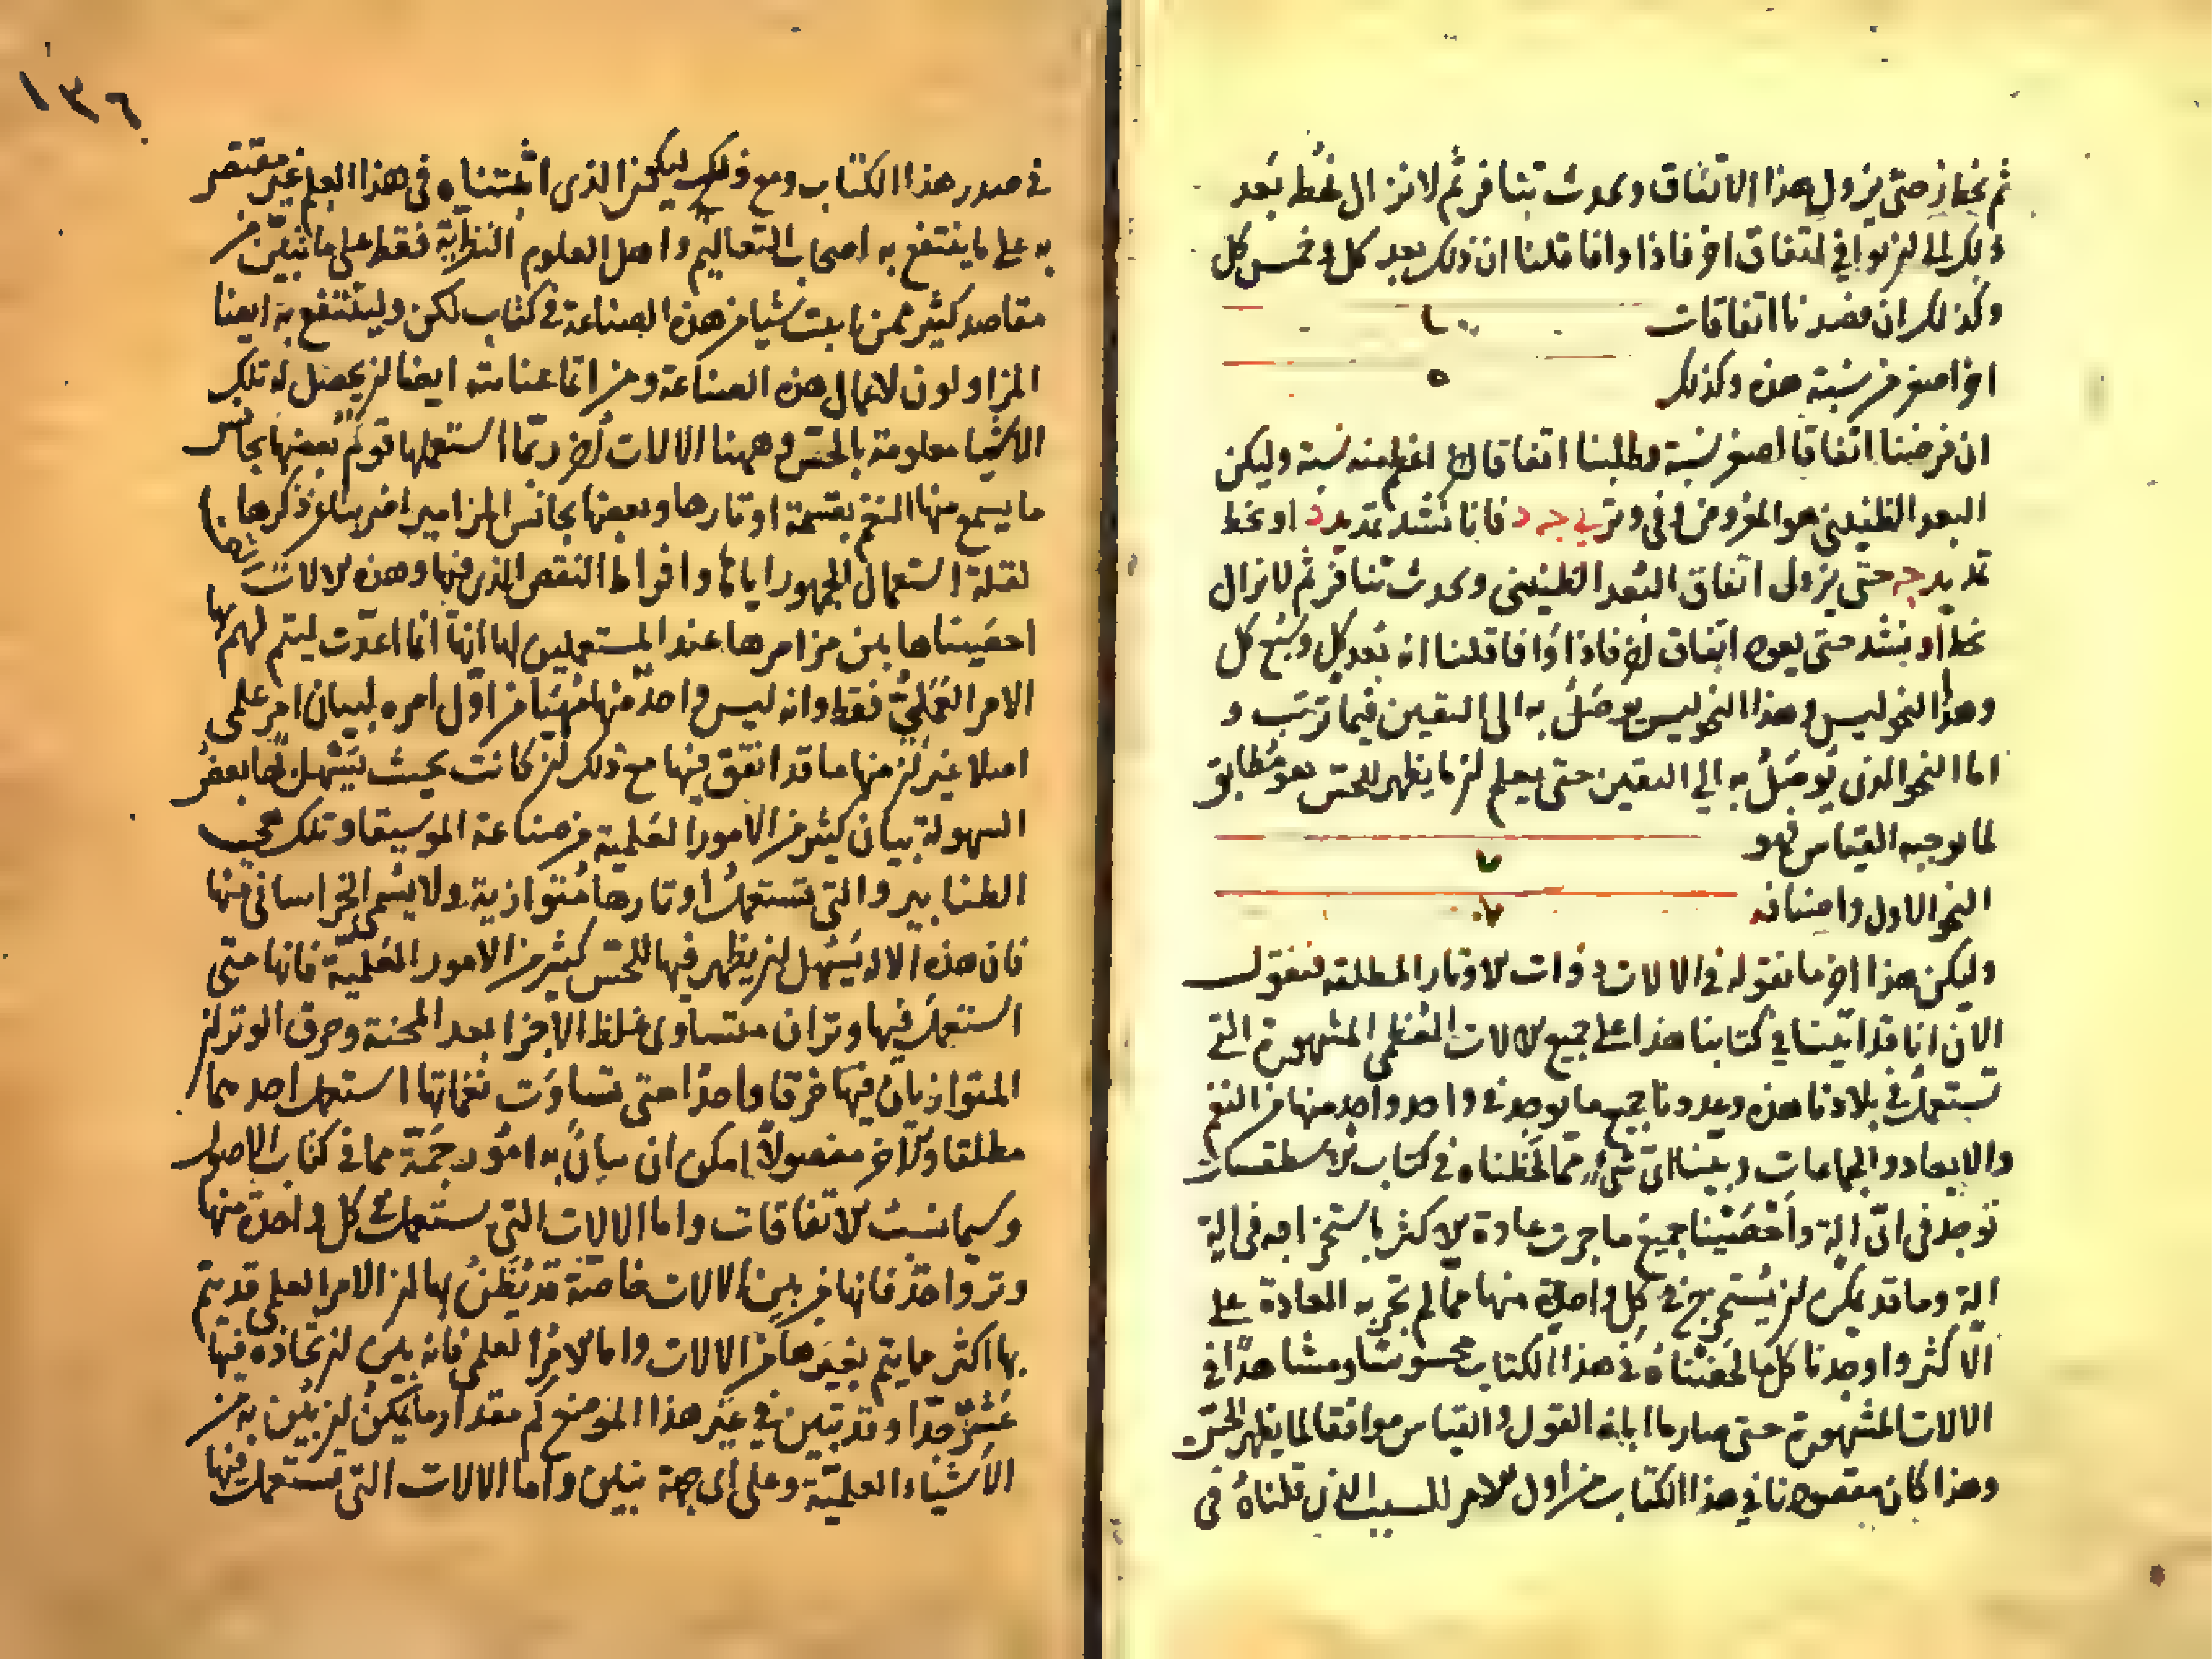 ثم نحط ز حتى يزول هذا الاتفاق ويحدث تنافر ثم لا نزال نحط بعد
ذلك الى ان يوافى اتفاق اخر فاذا وافا قلنا ان ذلك بعد كل وخمس كل
وكذلك ان قصدنا اتفاقات
اخر اصغر من نسبة هذه وكذلك
ان فرضنا اتفاقا اصغر نسبة وطلبنا اتفاقا اعظم منه نسبة وليكن
البعد الطنينى هو المفروض فى وترى جـ د فانا نشد تمديد د او نحط
تمديد جـ حتى يزول اتفاق البعد الطنينى ويحدث تنافر ثم لا نزال
نحط او نشد حتى يعود اتفاق اخر فاذا وافا قلنا انه بعد كل وتسع كل
وهذا النحو ليس وهذا النحو ليس يوصل به الى اليقين فيما ترتب و
اما النحو الذى يوصل به الى اليقين حتى يعلم ان ما يظهر للحس هو مطابق
لما يوجبه القياس فهو
النحو الاول واصنافه
وليكن هذا اخر ما نقوله فى الالات ذوات الاوتار المطلقه فنقول
الآن انا قد اتينا فى كتابنا هذا على جميع الالات العظمى المشهورة التى
تستعمل فى بلادنا هذه وعددنا جميع ما يوجد فى واحد واحد منها من النغم
والابعاد والجماعات وبينا اى شىء مما لخصناه فى كتاب الاسطقسات
توجد فى اى الة واحصينا جميع ما جرت عادة الاكثر باستخراجه فى الة
الة وما قد يمكن ان يستخرج فى كل واحدة منها مما لم تجر به العادة على
الاكثر واوجدنا كل ما لخصناه فى هذا الكتاب محسوسا ومشاهدا فى
الالات المشهورة حتى صار ما ابانه القول والقياس موافقا لما يظهر للحس
وهذا كان مقصودنا فى هذا الكتاب من اول الامر للسبب الذى قلناه فى
١٣٦
فى صدر هذا الكتاب ومع ذلك ليكن الذى اثبتناه فى هذا العلم غير مقتصر
به على ما ينتفع به اصحاب التعاليم واهل العلوم النظرية فقط على ما تبين من
مقاصد كثير ممن اثبت شيا من هذه الصناعة فى كتاب لكن ولينتفع به ايضا
المزاولون لاعمال هذه الصناعة ومن انما عنايته ايضا ان يحصل له تلك
الاشيا معلومة بالحس وههنا الالات اخر ربما استعملها قوم بعضها يجانس
ما يسمع منها النغم بقسمة اوتارها وبعضها يجانس المزامير اضربنا عن ذكرها
لقلة استعمال الجمهور اياها وافراط النقص الذى فيها وهذه الالات التى
احصيناها بين من امرها عند المستعملين لها انها انما اعدت ليتم لهم بها
الامر العملى فقط وانه ليس واحد منها مهيا من اول امره لبيان امر علمى
اصلا غير ان منها ما قد اتفق فيها مع ذلك ان كانت بحيث يسهل بها بعض
السهولة بيان كثير من الامور العلمية من صناعة الموسيقا وتلك هى
الطنابير والتى تستعمل اوتارها متوازية ولا سيما الخراسانى منها
فان هذه الاله يسهل ان يظهر فيها للحس كثير من الامور العلمية فانها متى
استعمل فيها وتران متساوى غلظ الاجزا بعد المحنة وحزق الوتران
المتوازيان فيها حزقا واحدا حتى تساوت نغماتها استعمل احدهما
مطلقا والآخر مفصولا امكن ان يبان به امور جمة مما فى كتاب الاصول
وسيما نسب الاتفاقات واما الالات التى يستعمل فى كل واحدة منها
وتر واحد فانها من بين الالات خاصة قد يظن بها ان الامر العلمى قد يتم
بها اكثر مما يتم بغيرها من الالات واما الامر العملى فانه بين ان تخاذه فيها
عسر جدا وقد تبين فى غير هذا الموضع كم مقدار ما يمكن ان يبين به من
الاشياء العلمية وعلى اى جهة تبين واما الالات التى تستعمل فيها